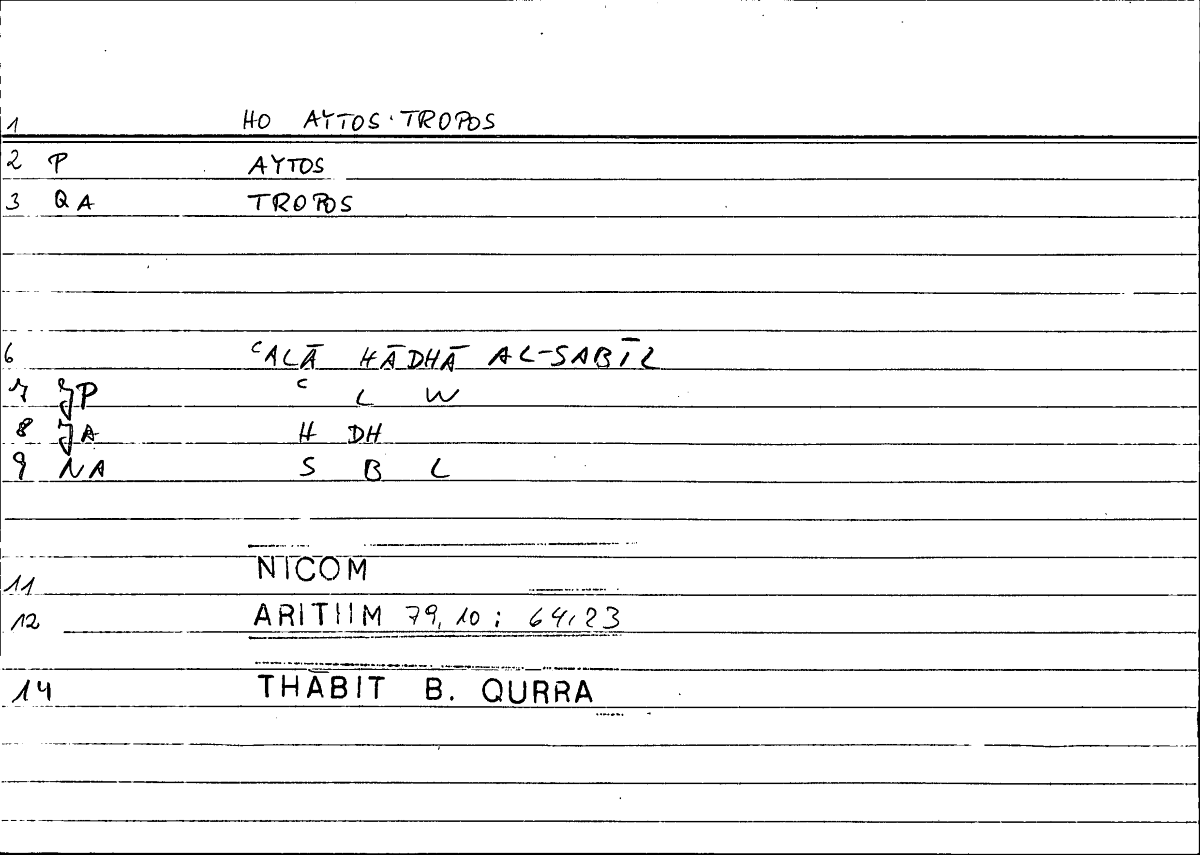 1 HO AYTOS TROPOS
2 P AYTOS
3 QA TROPOS
6 ʿALĀ HĀDHĀ AL-SABĪL
7 JP ʿ L W
8 JA H DH
9 NA S B L
11 NICOM
12 ARITIIM 79,10 ; 64,23
14 THĀBIT B. QURRA